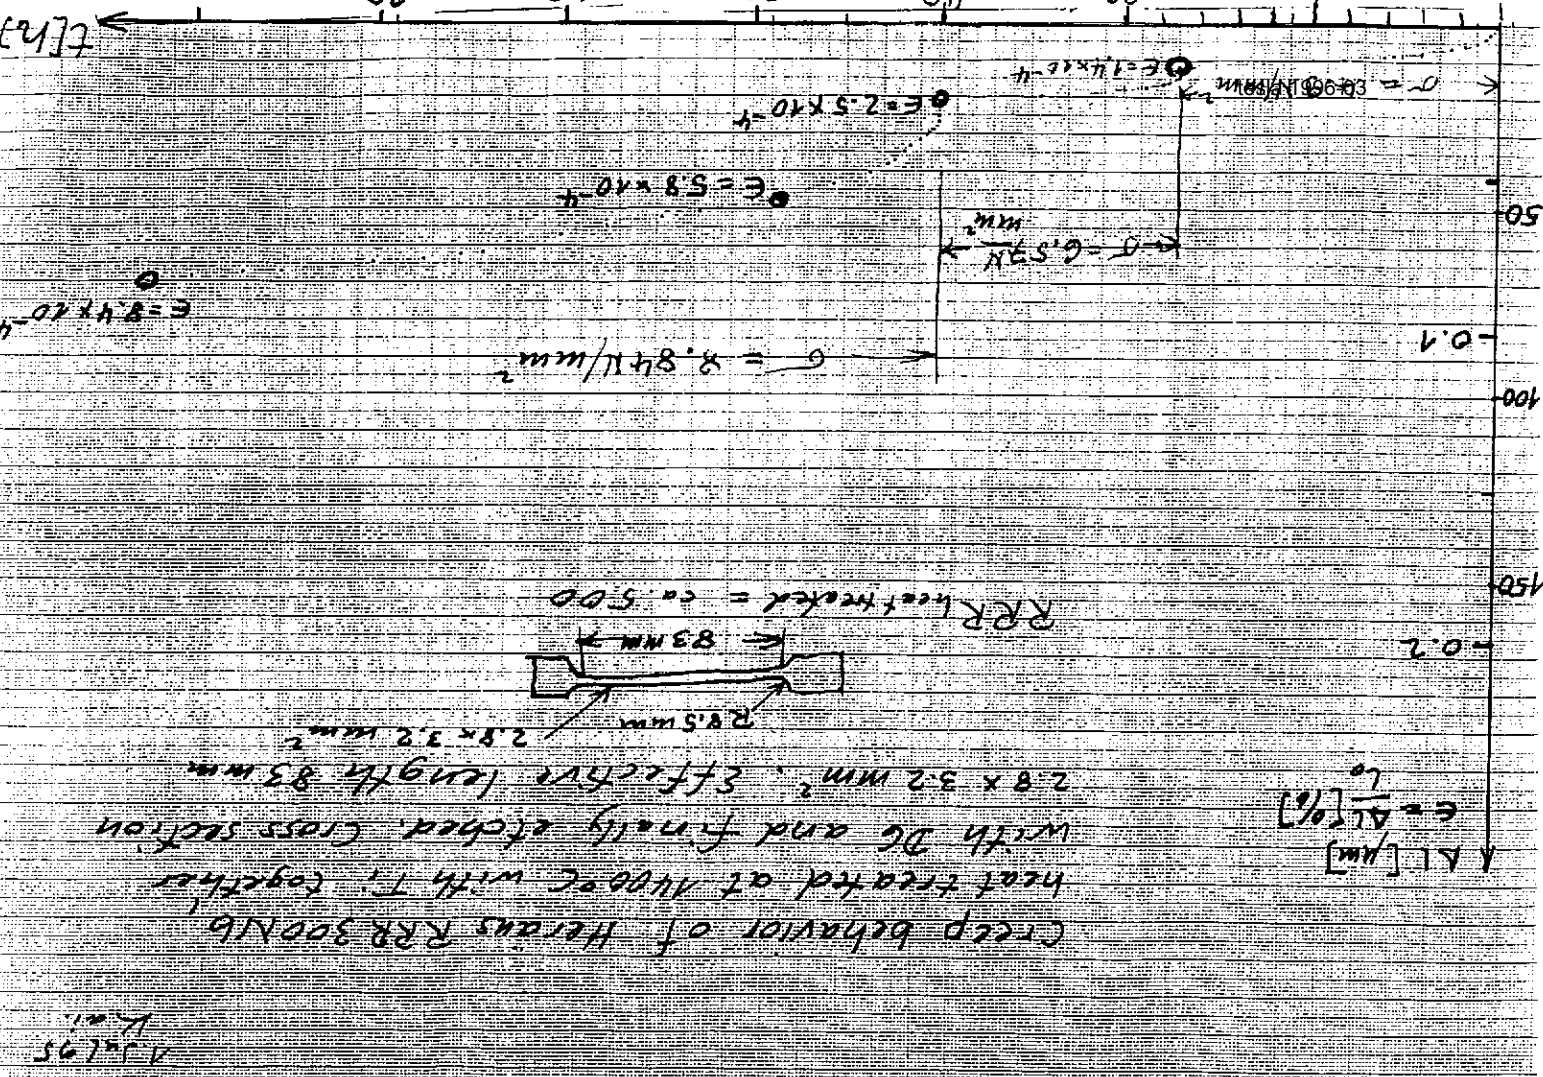 1. Jul 95
Kai.
Creep behavior of Heraus RRR 300Nb,
heat treated at 1400°C with Ti together
with D6 and finally etched. Cross section
2.8 x 3.2 mm². Effective length 83 mm
ΔL [µm]
ε = ΔL/L₀ [%]
2.8 x 3.2 mm²
R 8.5 mm
83 mm
RRR heat treated = ca. 500
0.2
150
100
0.1
50
ε = 8.4 x 10⁻⁴
ε = 5.8 x 10⁻⁴
ε = 2.5 x 10⁻⁴
ε = 1,4 x 10⁻⁴
σ = 6,57 N/mm²
σ =
t [h]